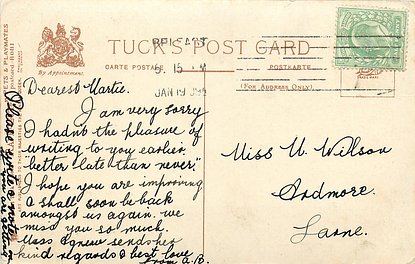 TUCK'S POST CARD
CARTE POSTALE
POSTKARTE
By Appointment.
(FOR ADDRESS ONLY.)
BELFAST
5. 15
JAN 19
Dearest Martie.
I am very sorry
I hadn't the pleasure of
writing to you earlier.
"better late than never."
I hope you are improving
& shall soon be back
amongst us again. we
miss you so much.
Miss Agnew sends her
kind regards & best love
from A.B.
Please write a note
Miss U. Wilson
Ardmore.
Larne.